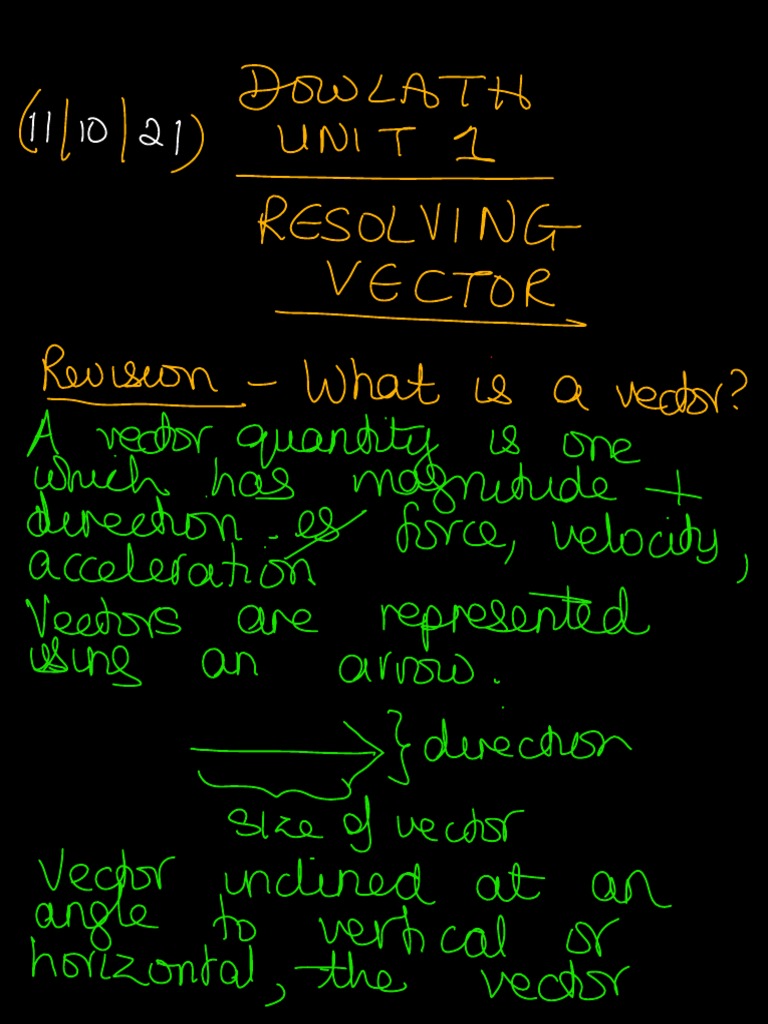 DOWLATH
(11/10/21) UNIT 1
RESOLVING
VECTOR
Revision - What is a vector?
A vector quantity is one
which has magnitude +
direction. eg force, velocity,
acceleration
Vectors are represented
using an arrow.
} direction
size of vector
Vector inclined at an
angle to vertical or
horizontal, the vector